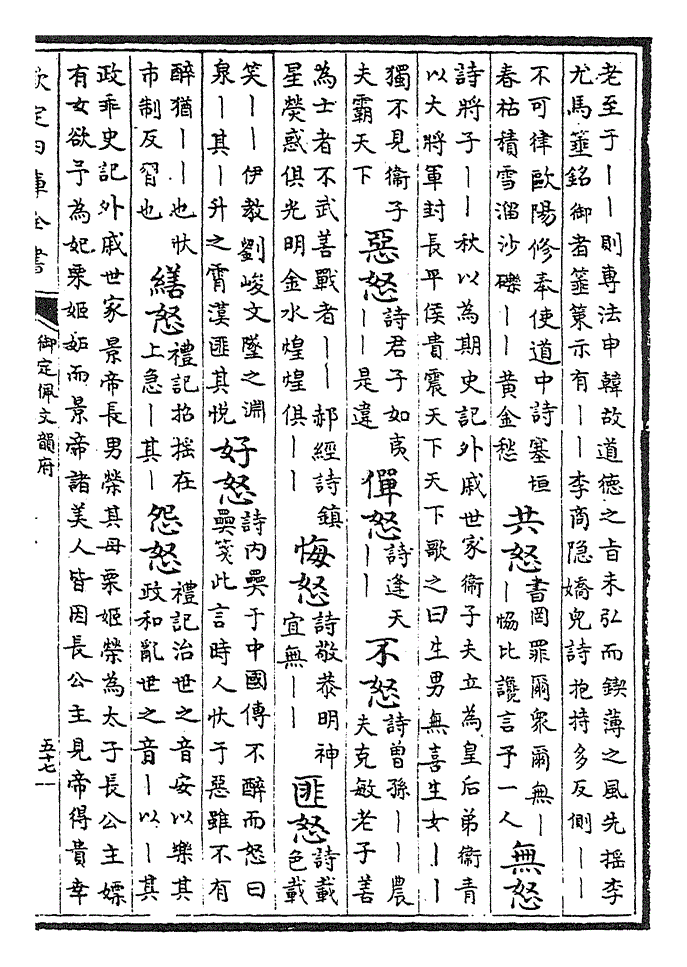 老至于丨丨則専法申韓故道徳之㫖未弘而鍥薄之風先揺李
尤馬箠銘御者箠策示有丨丨李商隐嬌兒詩抱持多反側丨丨
不可律歐陽修奉使道中詩塞垣
春枯積雪溜沙礫丨丨黄金愁
共怒
書罔罪爾衆爾無丨
丨恊比讒言予一人
無怒
詩將子丨丨秋以為期史記外戚世家衞子夫立為皇后弟衞青
以大將軍封長平侯貴震天下天下歌之曰生男無喜生女丨丨
獨不見衞子
夫霸天下
惡怒
詩君子如夷
丨丨是違
僤怒
詩逢天
丨丨
不怒
詩曽孫丨丨農
夫克敏老子善
為士者不武善戰者丨丨郝經詩鎮
星熒惑俱光明金水煌煌俱丨丨
悔怒
詩敬恭明神
宜無丨丨
匪怒
詩載
色載
笑丨丨伊教劉峻文墜之淵
泉丨其丨升之霄漢匪其悦
好怒
詩内奰于中國傳不醉而怒曰
奰箋此言時人忕于惡雖不有
醉猶丨丨也忕
市制反習也
繕怒
禮記招揺在
上急丨其丨
怨怒
禮記治世之音安以樂其
政和亂世之音丨以丨其
政乖史記外戚世家景帝長男榮其母栗姬榮為太子長公主嫖
有女欲予為妃栗姬妬而景帝諸美人皆因長公主見帝得貴幸
欽定四庫全書
御定佩文韻府
五十七